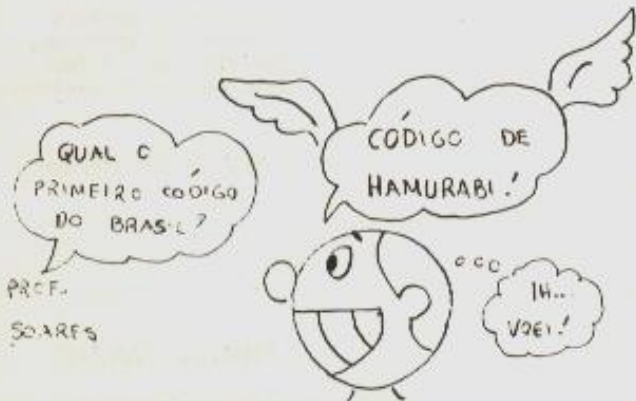 QUAL O
PRIMEIRO CÓDIGO
DO BRASIL?
PROF.
SOARES
CÓDIGO DE
HAMURABI!
IH...
VOEI!